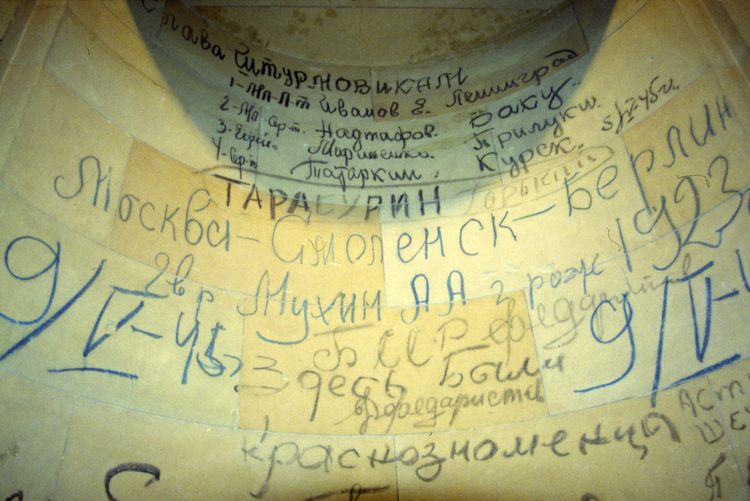 Слава Штурмовикам
1-Мл-Л-т Иванов Е. Ленинград
2-Мл Сер-т. Надтафов. Баку.
3- Мариненко. Прилуки.
4-Сер-т Татаркин. Курск. 5/V-45г.
ТАРАСУРИН Горький
Москва-Смоленск-Берлин
Гвр Мухин АА г рож 1923
9/V-45г 9/V-
БССР
Здесь Были
краснознаменцы
АСТ
ШЕ